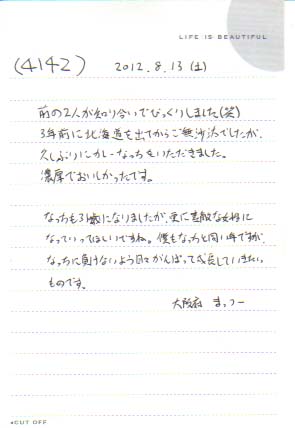 LIFE IS BEAUTIFUL
(4142) 2012.8.13(土)
前の2人が知り合いでびっくりしました(笑)
3年前に北海道を出てからご無沙汰でしたが、
久しぶりにカレーなっちをいただきました。
濃厚でおいしかったです。
なっちも31歳になりましたが、更に素敵な女性に
なっていってほしいですね。僕もなっちと同い年ですが、
なっちに負けないよう日々がんばって成長していきたい
ものです。
大阪府 まっつー
CUT OFF